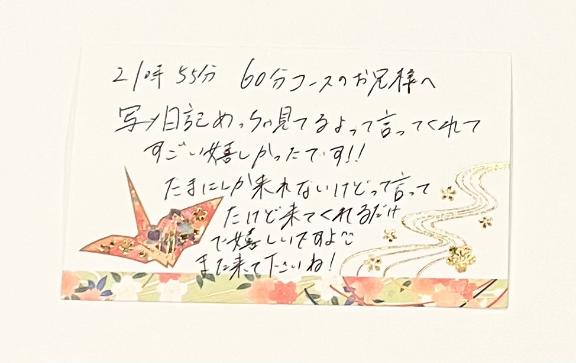 21時55分 60分コースのお兄様へ
写メ日記めっちゃ見てるよって言ってくれて
すごい嬉しかったです!!
たまにしか来れないけどって言って
たけど来てくれるだけ
で嬉しいですよ♡
また来て下さいね!